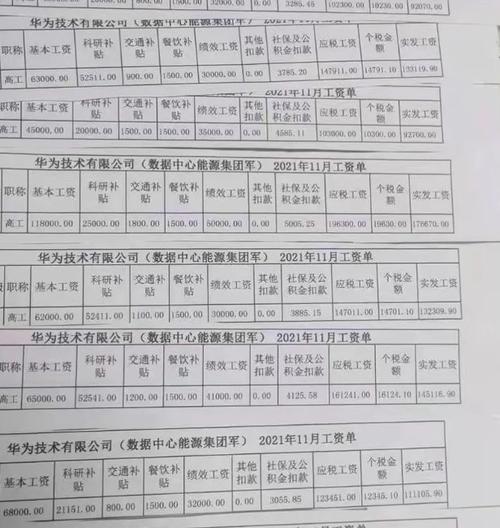 3285.45 102300.00 10230.00 92070.00
华为技术有限公司（数据中心能源集团军） 2021年11月工资单
职称 基本工资 科研补贴 交通补贴 餐饮补贴 绩效工资 其他扣款 社保及公积金扣款 应税工资 个税金额 实发工资
高工 63000.00 52511.00 900.00 1500.00 30000.00 0.00 3785.20 147911.00 14791.10 133119.90
2021年11月工资单
职称 基本工资 科研补贴 交通补贴 餐饮补贴 绩效工资 其他扣款 社保及公积金扣款 应税工资 个税金额 实发工资
高工 45000.00 20000.00 1500.00 1500.00 35000.00 0.00 4585.11 103000.00 10300.00 92700.00
华为技术有限公司（数据中心能源集团军） 2021年11月工资单
职称 基本工资 科研补贴 交通补贴 餐饮补贴 绩效工资 其他扣款 社保及公积金扣款 应税工资 个税金额 实发工资
高工 118000.00 25000.00 1800.00 1500.00 50000.00 0.00 5005.25 196300.00 19630.00 176670.00
华为技术有限公司（数据中心能源集团军） 2021年11月工资单
职称 基本工资 科研补贴 交通补贴 餐饮补贴 绩效工资 其他扣款 社保及公积金扣款 应税工资 个税金额 实发工资
高工 62000.00 52411.00 1100.00 1500.00 30000.00 0.00 3885.15 147011.00 14701.10 132309.90
华为技术有限公司（数据中心能源集团军） 2021年11月工资单
职称 基本工资 科研补贴 交通补贴 餐饮补贴 绩效工资 其他扣款 社保及公积金扣款 应税工资 个税金额 实发工资
高工 65000.00 52541.00 1200.00 1500.00 41000.00 0.00 4125.58 161241.00 16124.10 145116.90
华为技术有限公司（数据中心能源集团军） 2021年11月工资单
基本工资 科研补贴 交通补贴 餐饮补贴 绩效工资 其他扣款 社保及公积金扣款 应税工资 个税金额 实发工资
68000.00 21151.00 800.00 1500.00 32000.00 0.00 3055.85 123451.00 12345.10 111105.90